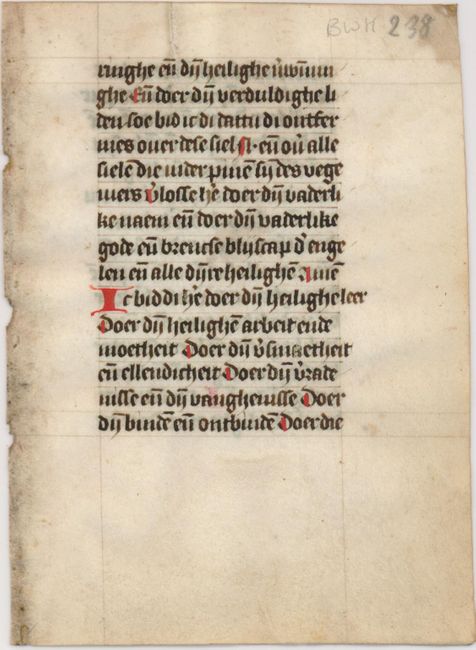 BWH 238
ringhe eñ dij̄ heilighe v̓wīnin
ghe Eñ doer dij̄ verduldighe li
den soe bid ic di dattu di ontfer
mes ouer dese siel N· eñ ou̓ alle
siele die in der pinen sij̄ des vege
vuers v̓losse he̓ doer dij̄ vaderli
ke naem eñ doer dij̄ vaderlike
gode eñ brencse blijscap d̓ enge
len eñ alle dijnre heilighē Amē
Ic bid di he̓ doer dij̄ heilighe leer
Doer dij̄ heilighē arbeit ende
moetheit Doer dij̄ v̓smaetheit
eñ ellendicheit Doer dij̄ v̓rade
nisse eñ dij̄ vanghenisse Doer
dij̄ bindē eñ ontbindē Doer die